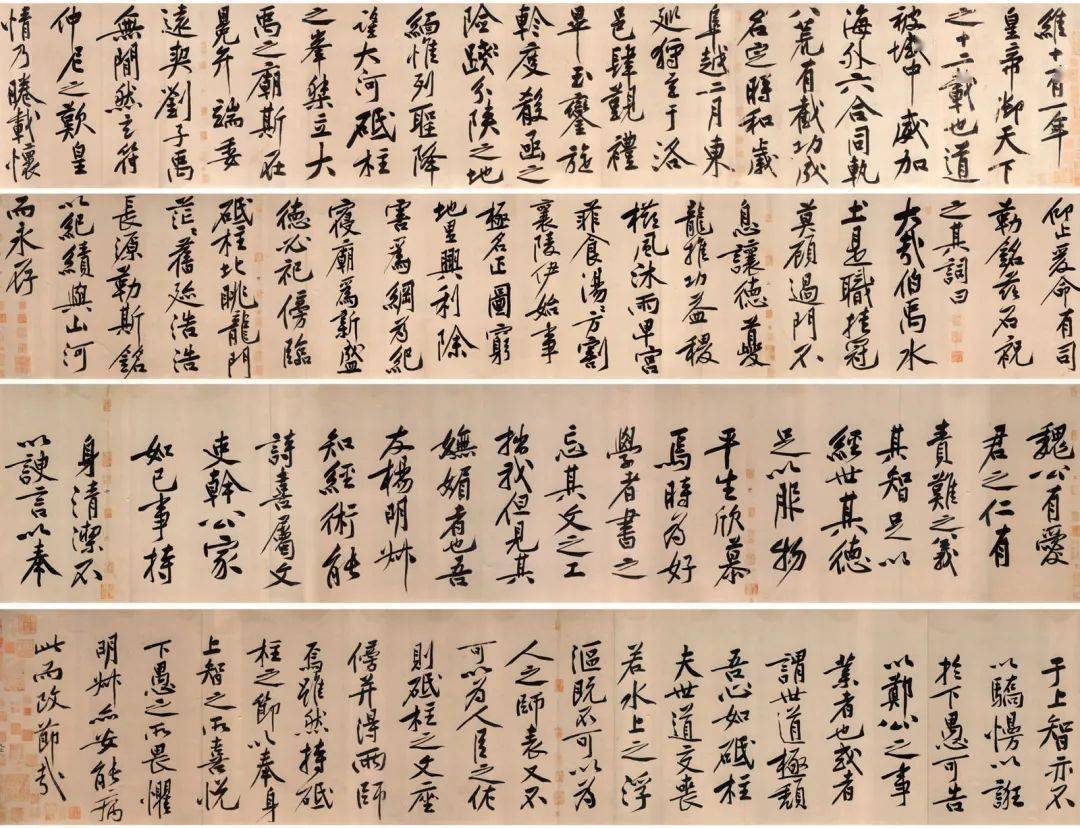 維十有一年
皇帝御天下
之十二載也道
被域中威加
海外六合同軌
八荒有截功成
名定時和歲
阜越二月東
巡狩至于洛
邑肆觀禮
畢玉鑾旋
軫度殽函之
險踐分陝之地
緬惟列聖降
望大河砥柱
之峯桀立大
禹之廟斯在
冕弁端委
遠契劉子禹
無間然玄符
仲尼之歎皇
情乃睠載懷
仰止爰命有司
勒銘茲石祝
之其詞曰
大哉伯禹水
土是職挂冠
莫顧過門不
息讓德夔
龍推功益稷
櫛風沐雨卑宮
菲食湯湯方割
襄陵伊始事
極名正圖窮
地里興利除
害爲綱爲紀
寢廟爲新盛
德必祀傍臨
砥柱北眺龍門
茫茫舊迹浩浩
長源勒斯銘
以紀績與山河
而永存
魏公有愛
君之仁有
責難之義
其智足以
經世其德
足以服物
平生欣慕
焉時爲好
學者書之
忘其文之工
拙我但見其
嫵媚者也吾
友楊明叔
知經術能
詩喜屬文
吏幹公家
如己事持
身清潔不
以諛言以奉
于上智亦不
以驕慢以誑
於下愚可告
以鄭公之事
業者也或者
謂世道極頹
吾心如砥柱
夫世道交喪
若水上之浮
漚既不可以爲
人之師表又不
可以爲人臣之佐
則砥柱之文座
傍并得兩師
焉雖然持砥
柱之節以奉身
上智之所喜悅
下愚之所畏懼
明叔亦安能病
此而改節哉